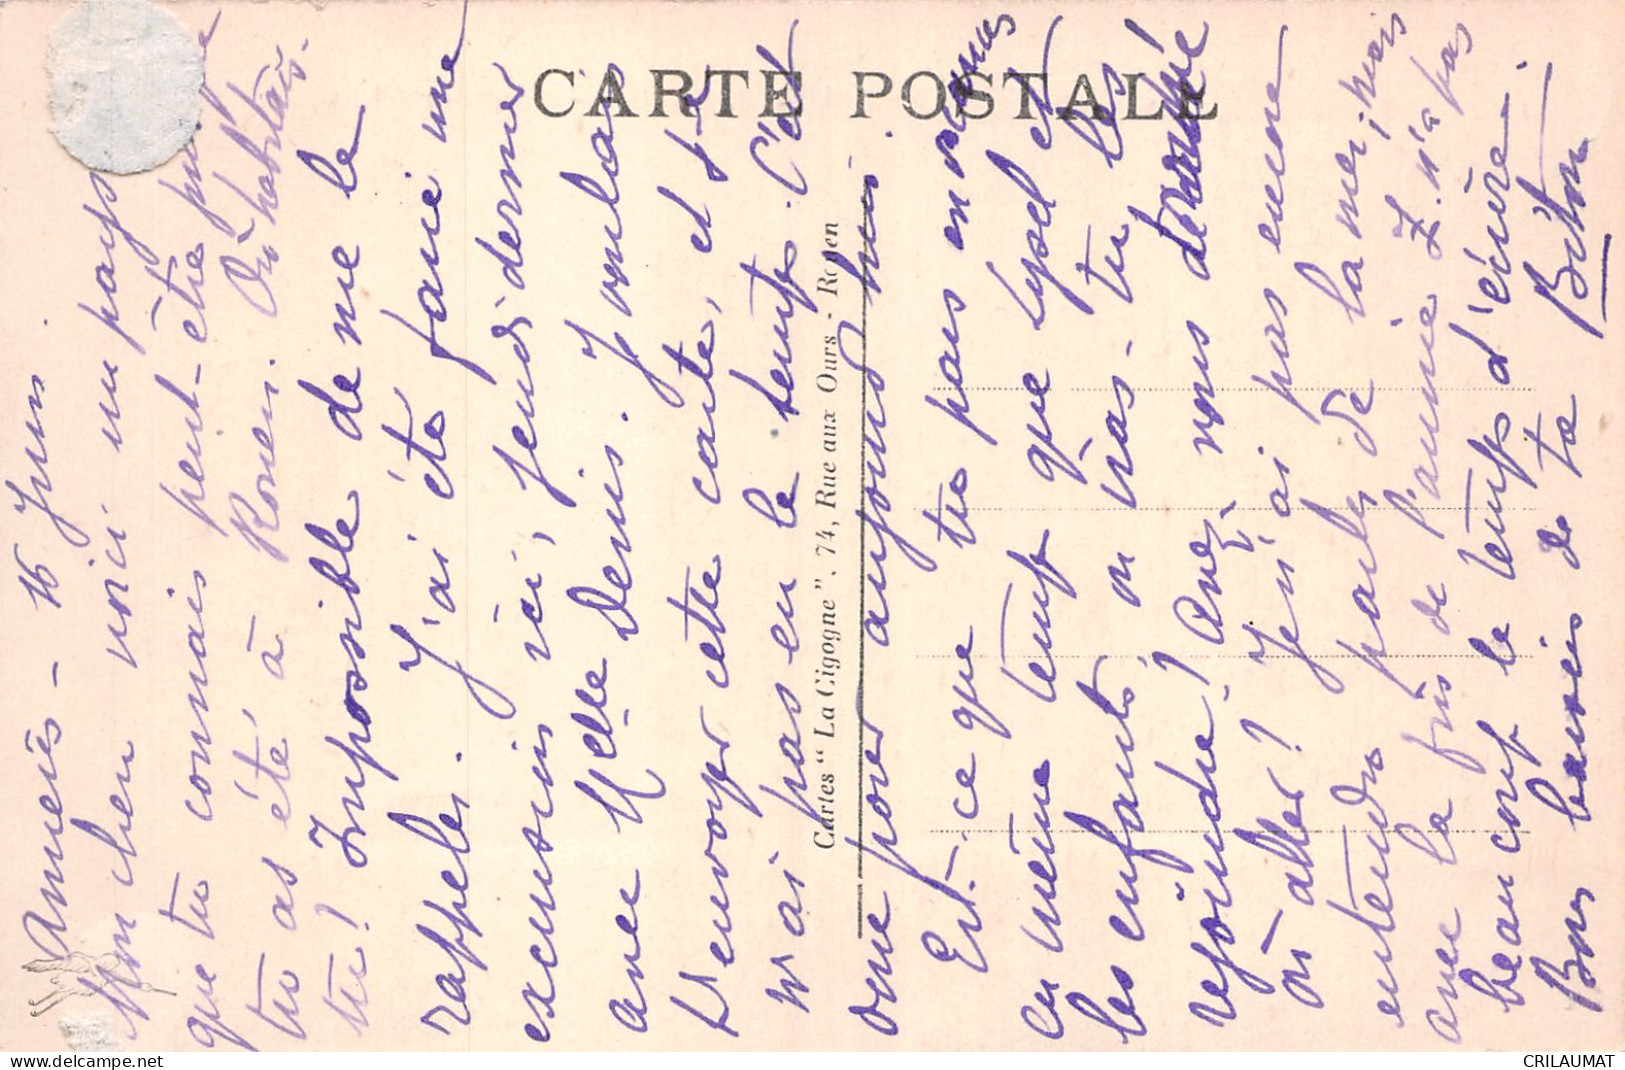 CARTE POSTALE
Cartes "La Cigogne". 74, Rue aux Ours - Rouen
Amiens - 16 Juin.
Mon chen voici un pays
que tu connais peut-être puisque
tu as été à Rouen. Où habitais-
tu? Impossible de me le
rappeler. J'ai été faire une
excursion ici, jeudi dernier
avec Melle Denis. Je voulais
t'envoyer cette carte, et je
n'ai pas eu le temps. C'est
donc pour aujourd'hui.
Est-ce que tu pars en vacances
en même temps que Lysel et
les enfants, ou vas-tu les
rejoindre? Avez vous décidé
où aller? Je n'ai pas encore
entendu parler de la mer, mais
avec la fin de l'année J. n'a pas
beaucoup le temps d'écrire.
Bons baisers de ta Béton
delcampe.net
CRILAUMAT